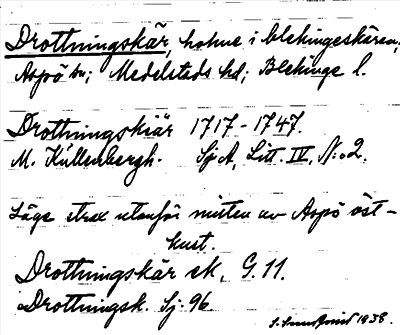 Drottningskär, holme i blekingeskären,
Aspö sn; Medelstads hd; Blekinge l.
Drottningskiär 1717-1747.
M. Kullenbergh. Sj A, Litt. IV, N:o 2.
Läge strax utanför mitten av Aspö öst-
kust.
Drottningskär ek, G. 11.
Drottningsk. Sj. 96.
1938.